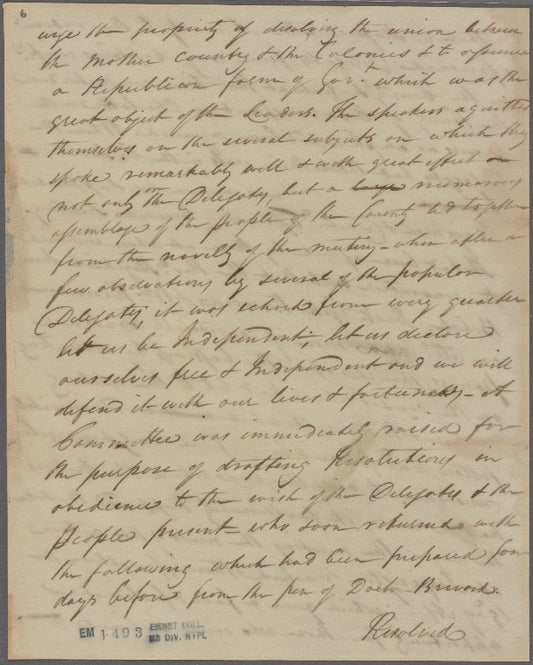 6
urge the propriety of desolving the union between
the Mother Country & the Colonies & to
a Republican form of Govt. which was the
great object of the Leaders. The speakers aquitted
themselves on the several subjects on which they
spoke remarkably well & with great effect on
not only the Delegates but a large numerous
assemblage of the People of the County
from the novelty of the meeting – when after a
few observations by several of the popular
Delegates, it was echoed from every quarter
let us be Independent; let us declare
ourselves free & Independent and we will
defend it with our lives & fortunes – A
Committee was immediately raised for
the purpose of drafting Resolutions in
obedience to the wish of the Delegates & the
People present – who soon returned with
the following which had been prepared some
days before from the pen of Doctr Brevard.
Resolved
EM 1493 EMMET COLL. MS DIV. NYPL